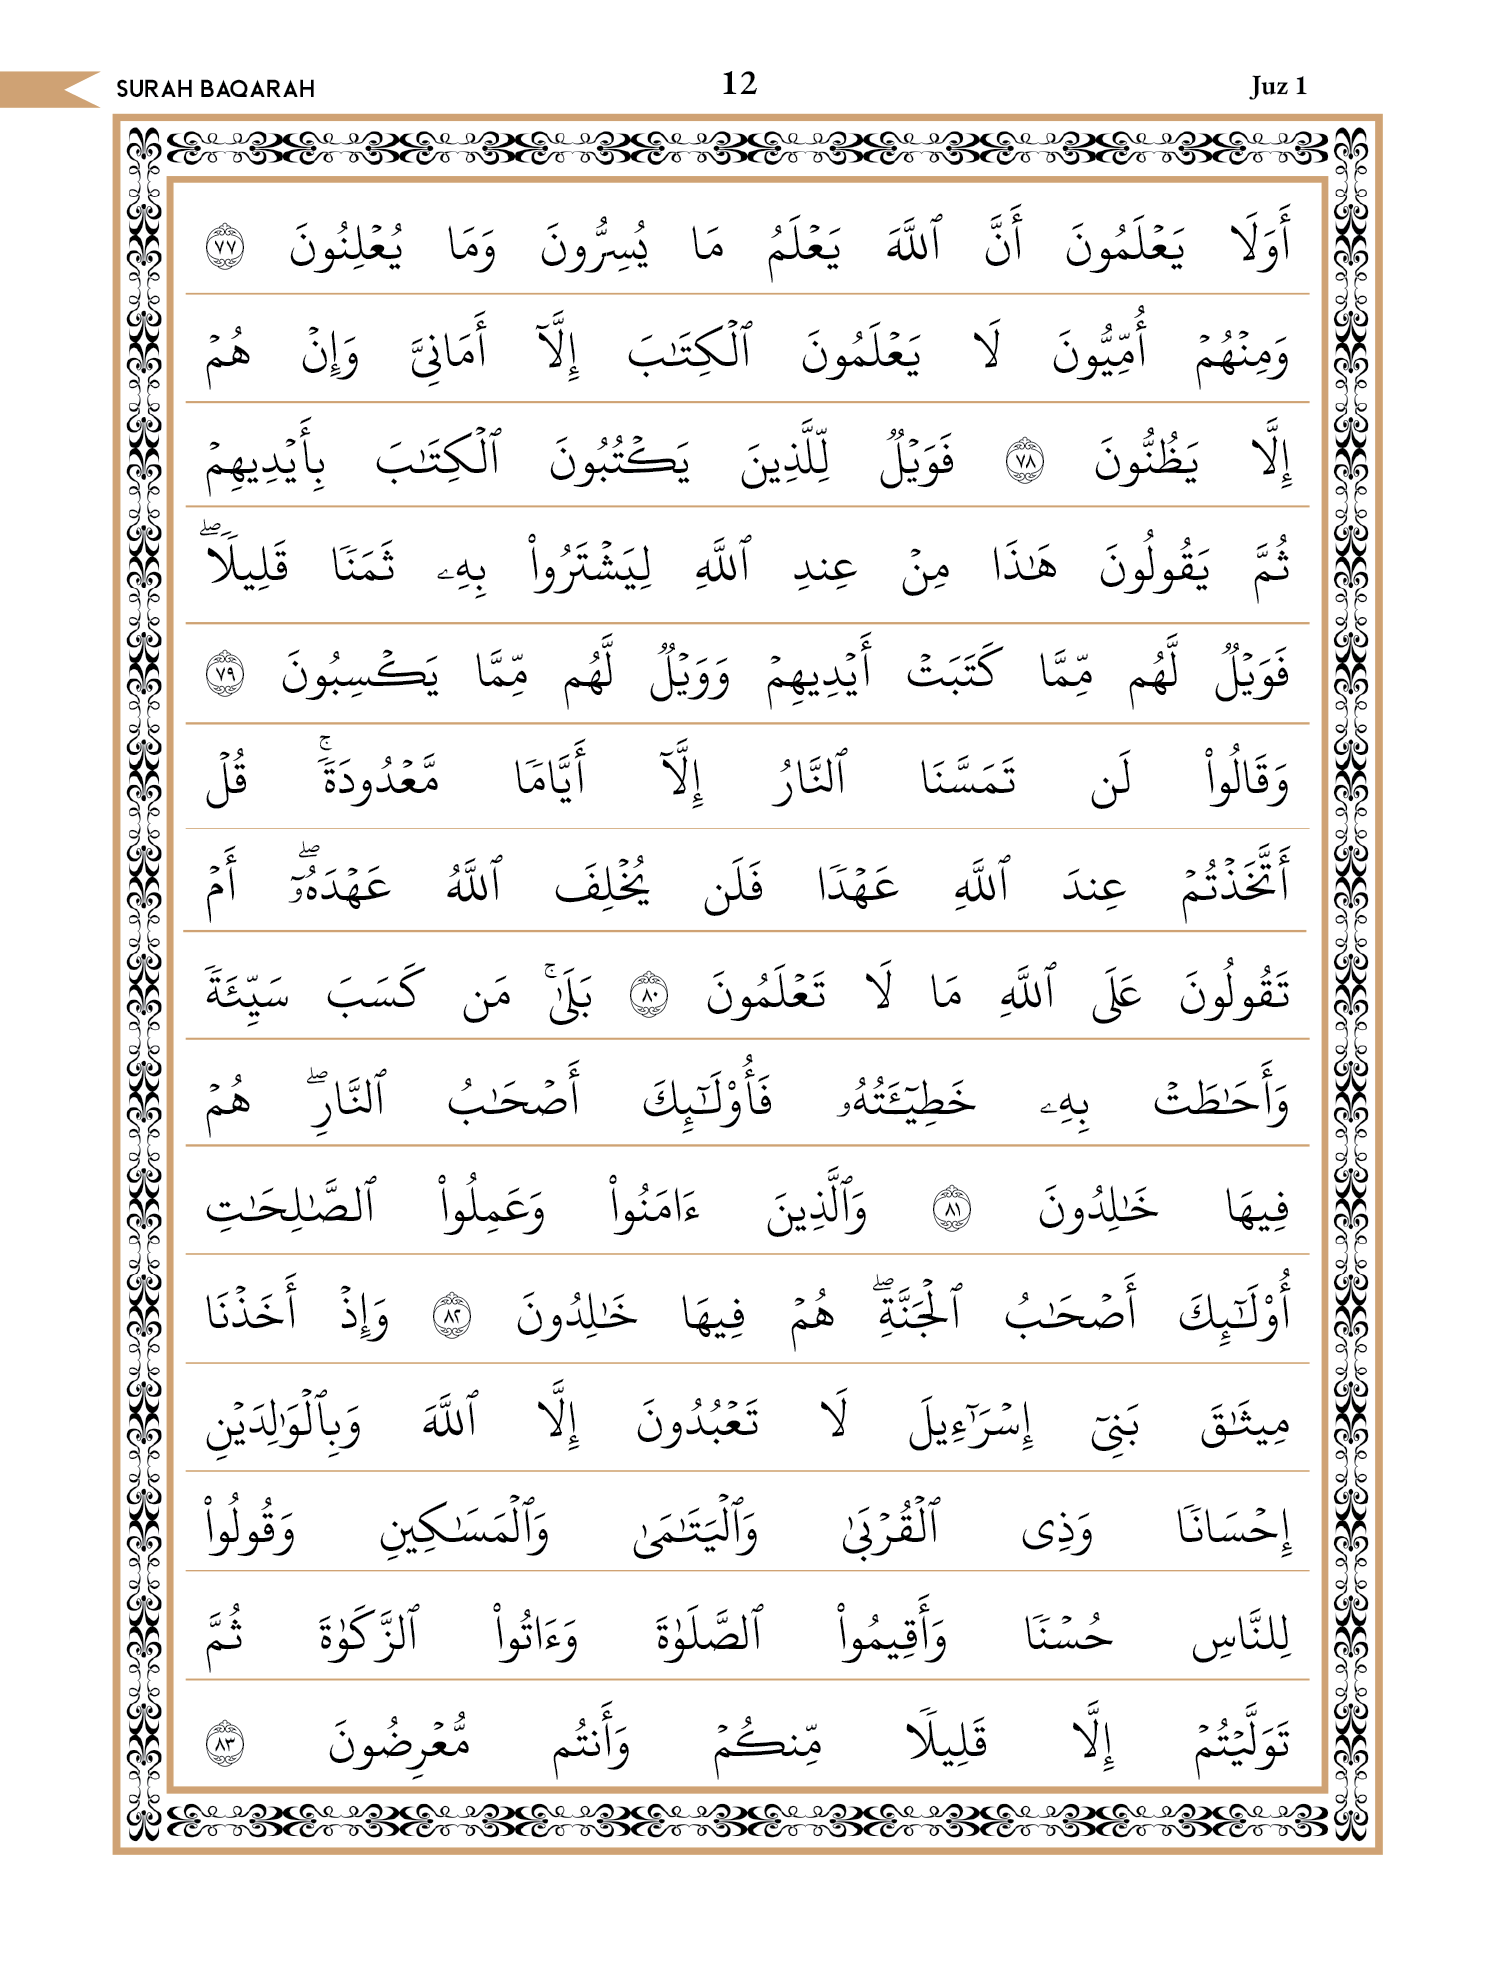 SURAH BAQARAH 12 Juz 1
أَوَلَا يَعْلَمُونَ أَنَّ ٱللَّهَ يَعْلَمُ مَا يُسِرُّونَ وَمَا يُعْلِنُونَ ٧٧
وَمِنْهُمْ أُمِّيُّونَ لَا يَعْلَمُونَ ٱلْكِتَٰبَ إِلَّآ أَمَانِىَّ وَإِنْ هُمْ
إِلَّا يَظُنُّونَ ٧٨ فَوَيْلٌ لِّلَّذِينَ يَكْتُبُونَ ٱلْكِتَٰبَ بِأَيْدِيهِمْ
ثُمَّ يَقُولُونَ هَٰذَا مِنْ عِندِ ٱللَّهِ لِيَشْتَرُوا۟ بِهِۦ ثَمَنًا قَلِيلًا ۖ
فَوَيْلٌ لَّهُم مِّمَّا كَتَبَتْ أَيْدِيهِمْ وَوَيْلٌ لَّهُم مِّمَّا يَكْسِبُونَ ٧٩
وَقَالُوا۟ لَن تَمَسَّنَا ٱلنَّارُ إِلَّآ أَيَّامًا مَّعْدُودَةً ۚ قُلْ
أَتَّخَذْتُمْ عِندَ ٱللَّهِ عَهْدًا فَلَن يُخْلِفَ ٱللَّهُ عَهْدَهُۥٓ ۖ أَمْ
تَقُولُونَ عَلَى ٱللَّهِ مَا لَا تَعْلَمُونَ ٨٠ بَلَىٰ ۚ مَن كَسَبَ سَيِّئَةً
وَأَحَٰطَتْ بِهِۦ خَطِيٓـَٔتُهُۥ فَأُو۟لَٰٓئِكَ أَصْحَٰبُ ٱلنَّارِ ۖ هُمْ
فِيهَا خَٰلِدُونَ ٨١ وَٱلَّذِينَ ءَامَنُوا۟ وَعَمِلُوا۟ ٱلصَّٰلِحَٰتِ
أُو۟لَٰٓئِكَ أَصْحَٰبُ ٱلْجَنَّةِ ۖ هُمْ فِيهَا خَٰلِدُونَ ٨٢ وَإِذْ أَخَذْنَا
مِيثَٰقَ بَنِىٓ إِسْرَٰٓءِيلَ لَا تَعْبُدُونَ إِلَّا ٱللَّهَ وَبِٱلْوَٰلِدَيْنِ
إِحْسَانًا وَذِى ٱلْقُرْبَىٰ وَٱلْيَتَٰمَىٰ وَٱلْمَسَٰكِينِ وَقُولُوا۟
لِلنَّاسِ حُسْنًا وَأَقِيمُوا۟ ٱلصَّلَوٰةَ وَءَاتُوا۟ ٱلزَّكَوٰةَ ثُمَّ
تَوَلَّيْتُمْ إِلَّا قَلِيلًا مِّنكُمْ وَأَنتُم مُّعْرِضُونَ ٨٣